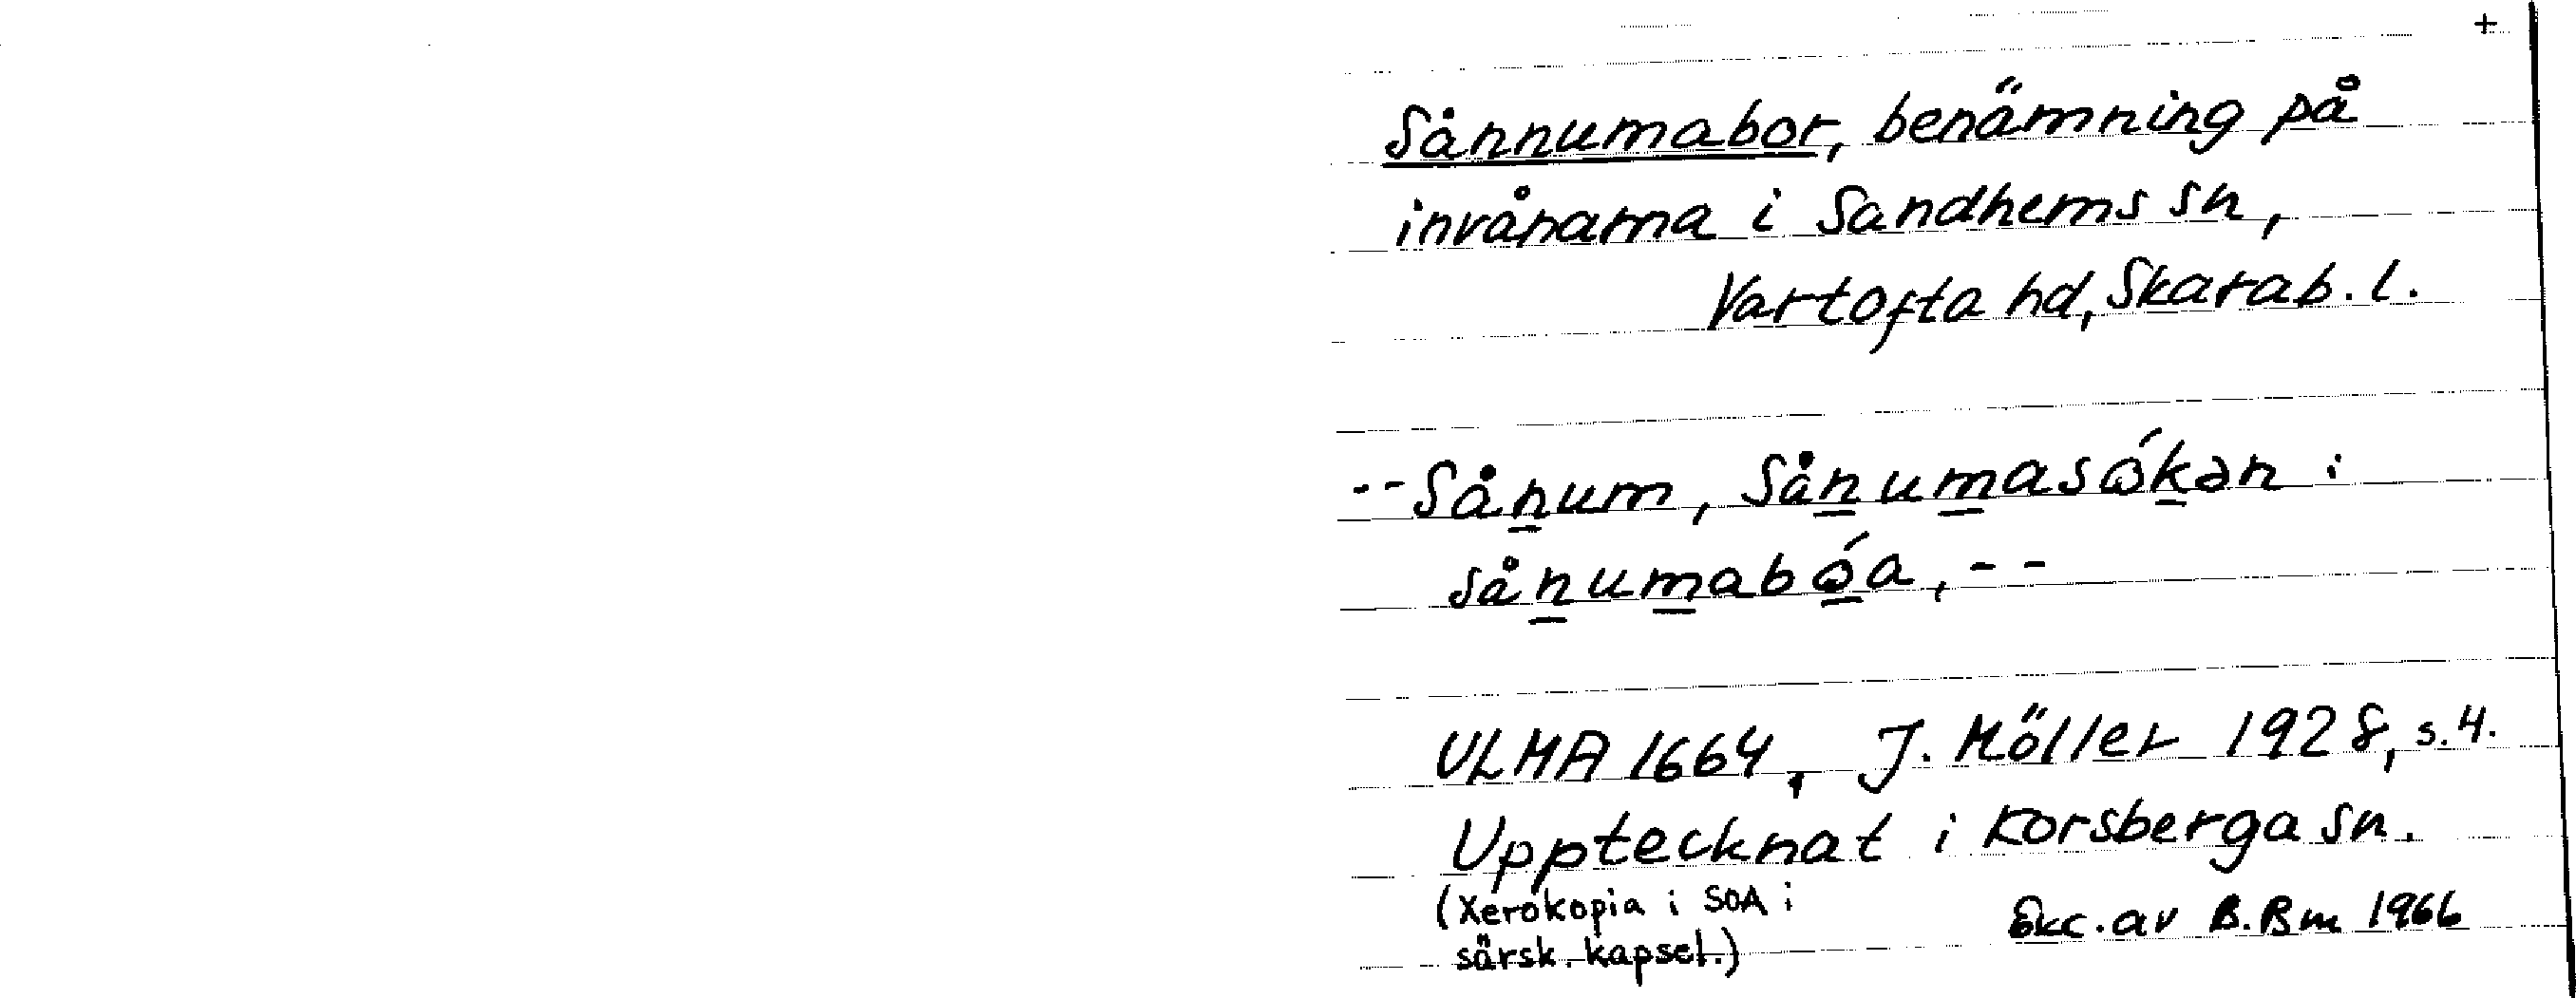 +
Sånnumabor, benämning på
invånarna i Sandhems sn,
Vartofta hd, Skarab. l.
-- Sånum, Sånumasǿkən :
sånumabǿa, --
ULMA 1664, J. Möller 1928, s. 4.
Upptecknat i Korsberga sn.
(Xerokopia i SOA i
särsk. kapsel.)
Exc. av B. Bm 1966